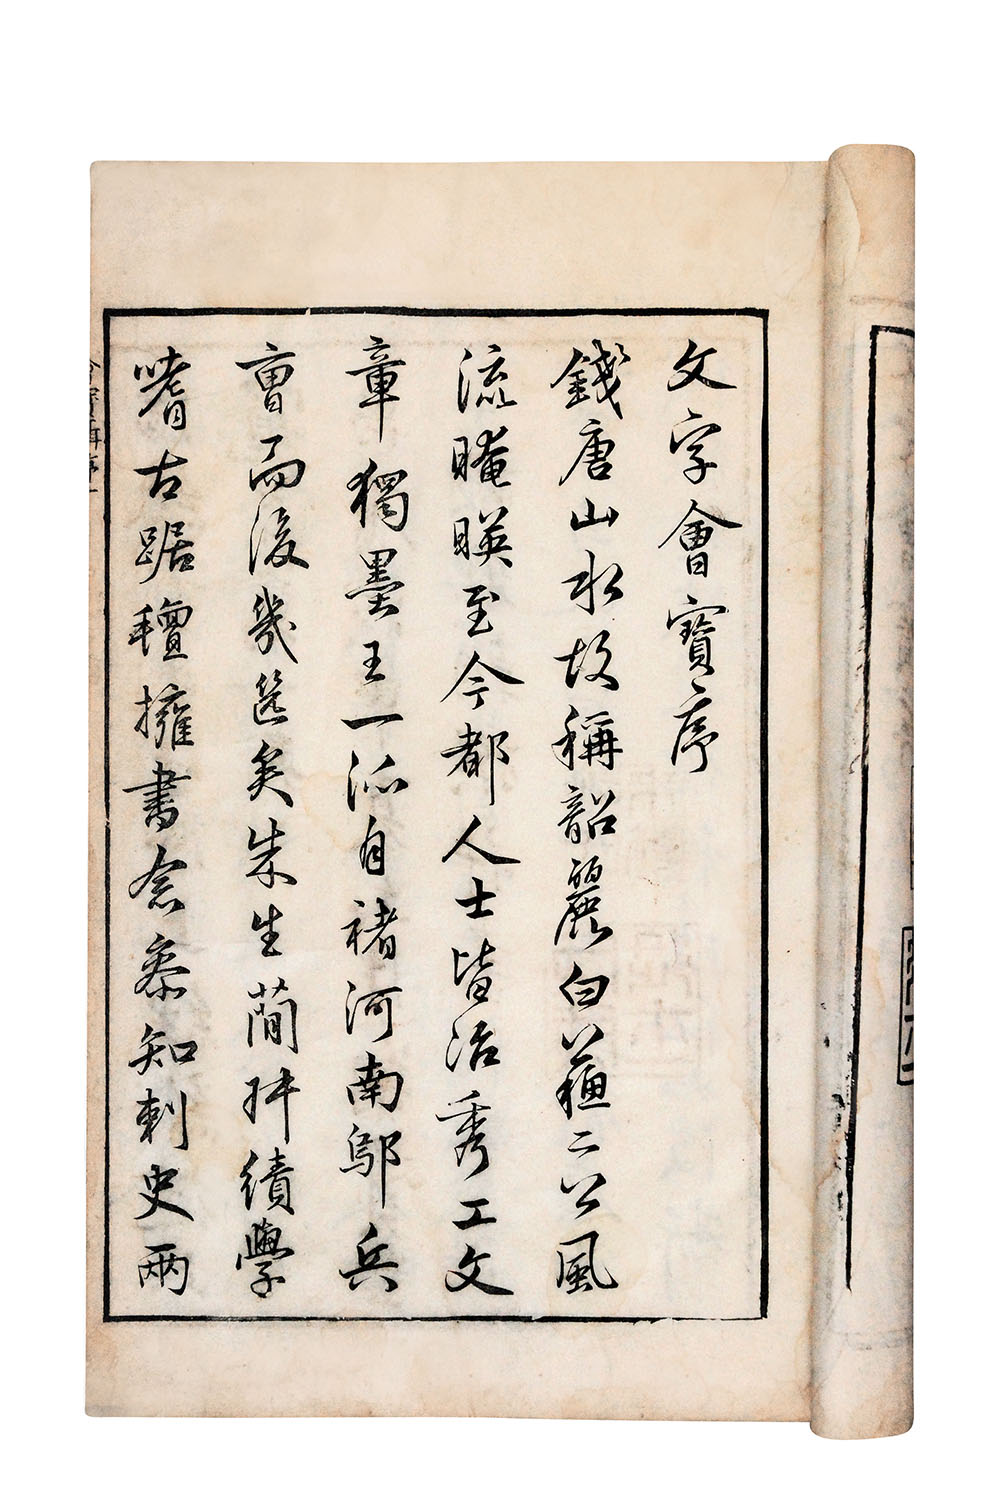 文字會寶序
錢唐山水故稱韶麗白蘓二公風
流晻暎至今都人士皆治秀工文
章獨墨王一派自褚河南鄔兵
曹而後幾箆矣朱生蕳幷績學
嗜古踞氊擁書念叅知刺史兩